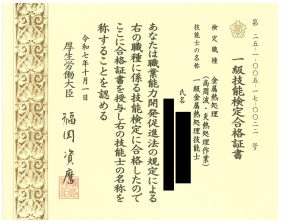 第 二五-一-〇〇五-一七-〇〇二二 号
一級技能検定合格証書
検定職種 金属熱処理
(高周波・炎熱処理作業)
技能士の名称 一級金属熱処理技能士
氏名
あなたは職業能力開発促進法の規定による
右の職種に係る技能検定に合格したので
ここに合格証書を授与し右の技能士の名称を
称することを認める
令和七年十月一日
厚生労働大臣 福岡資麿